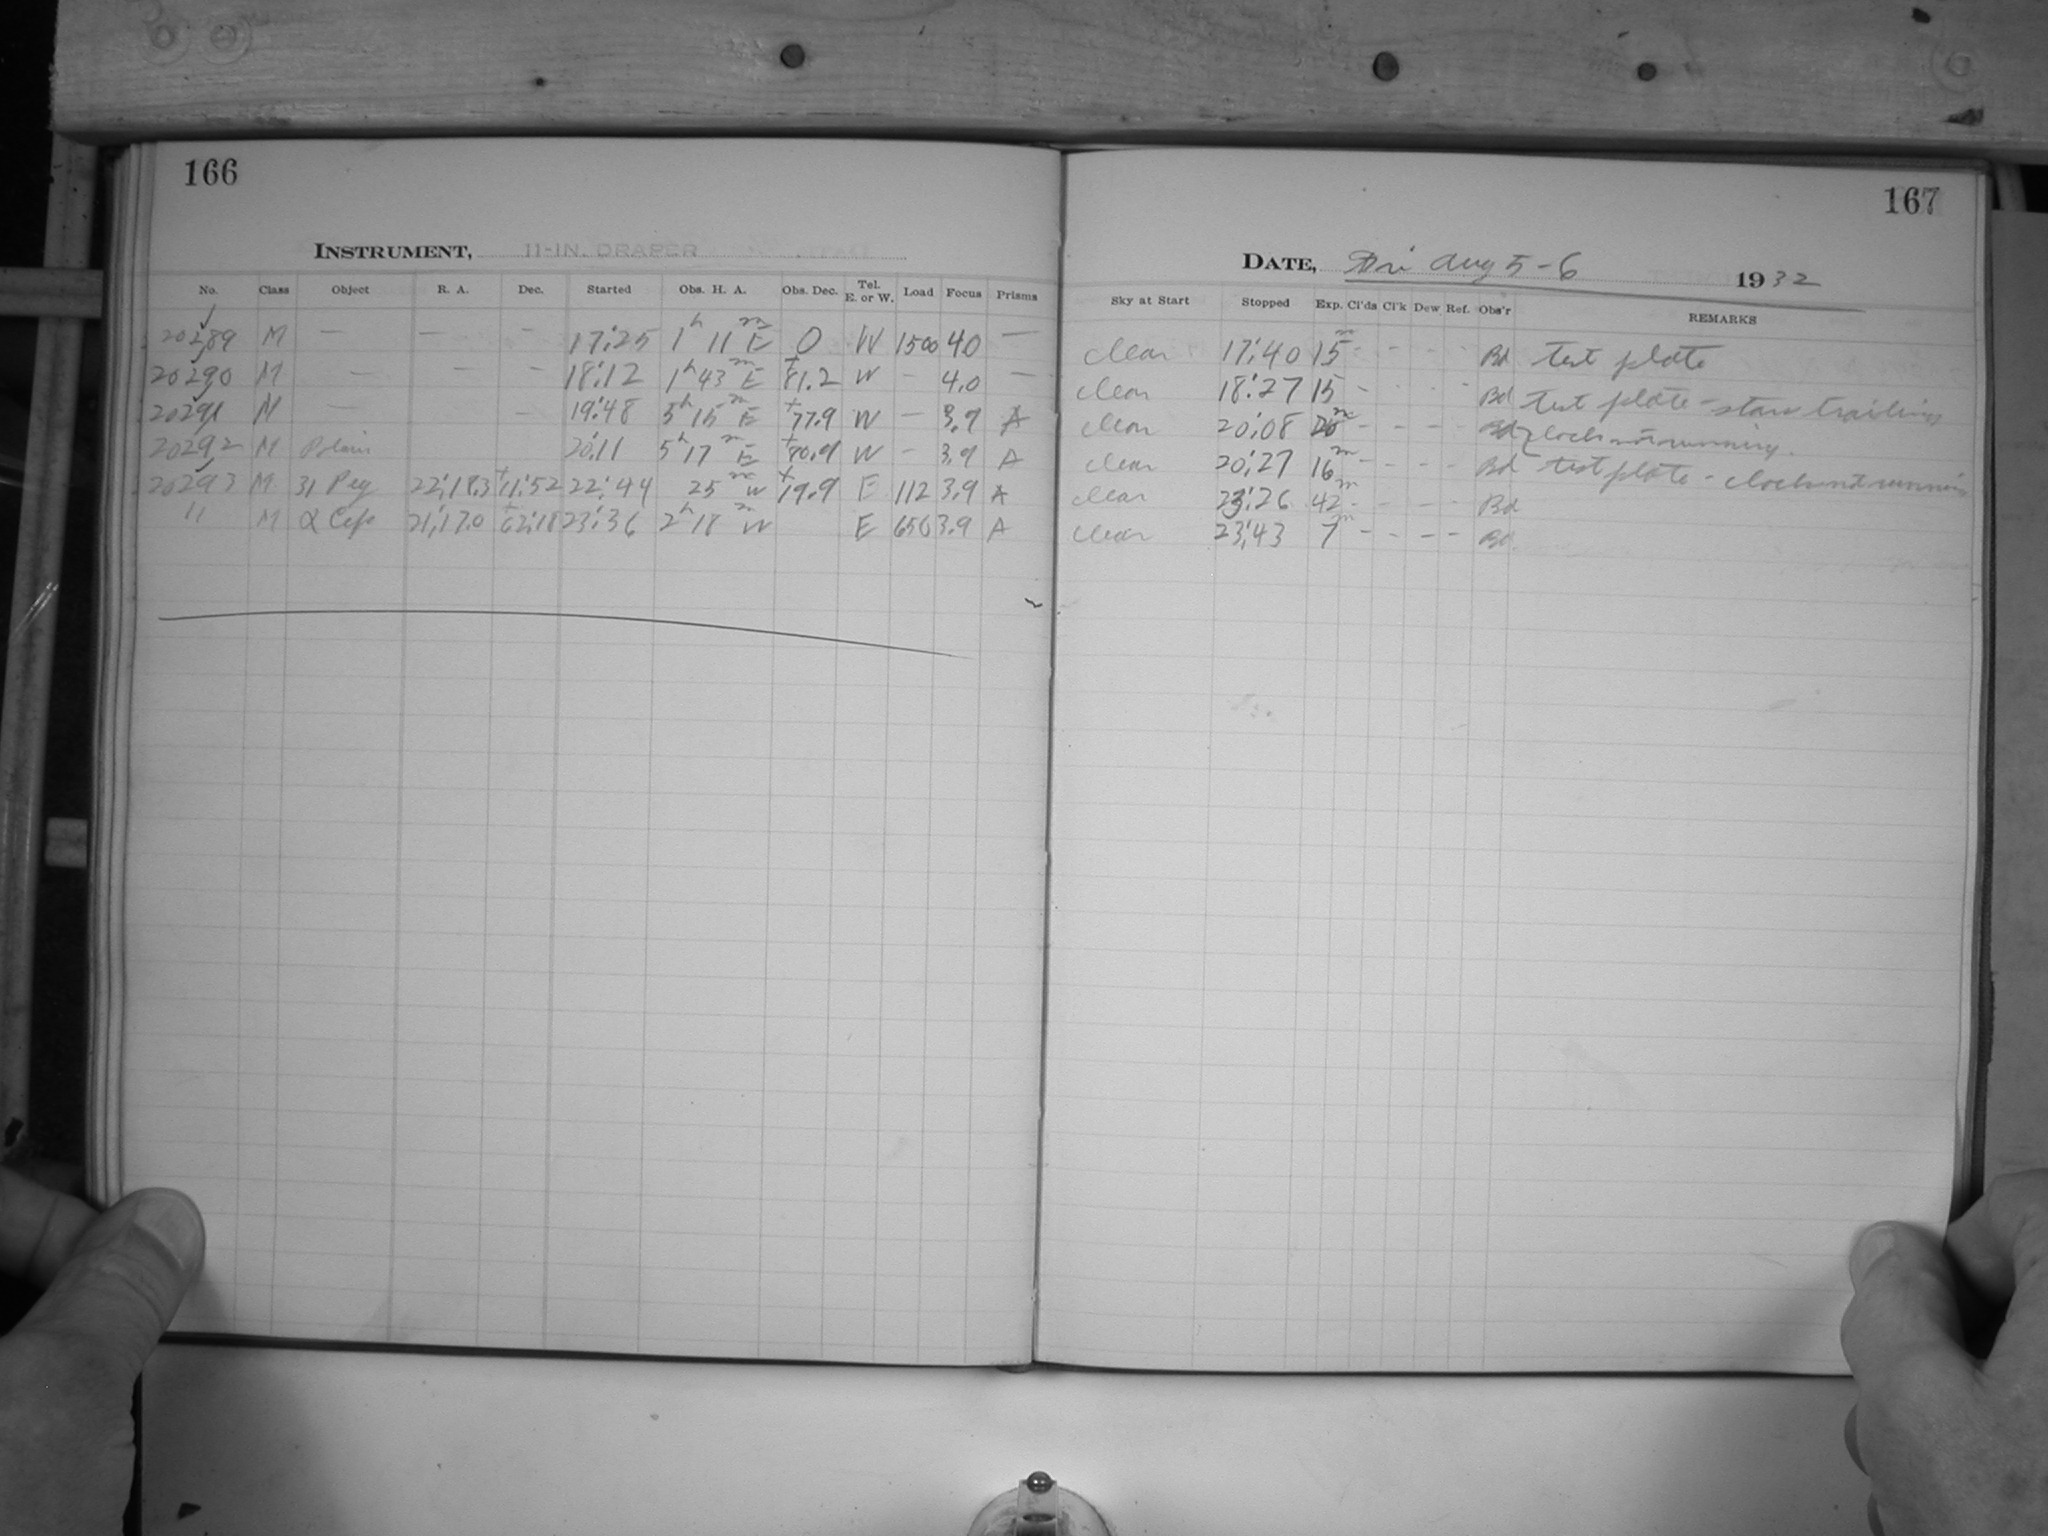 166
INSTRUMENT, 11-IN. DRAPER
No. Class Object R. A. Dec. Started Obs. H. A. Obs. Dec. Tel. E. or W. Load Focus Prisms
20289 M — — — 17:25 1h 11m E 0 W 1500 40 —
20290 M — — — 18:12 1h 43m E +81.2 W — 4.0 —
20291 M — — 19:48 5h 15m E +77.9 W — 3.9 A
20292 M 20:11 5h 17m E W — 3.9 A
20293 M 31 Peg 22:18.3 +11:52 22:44 25m W +19.9 E 112 3.9 A
11 M α Cep 21:17.0 +62:18 23:36 2h 18m W E 650 3.9 A
167
DATE, Fri Aug 5-6 1932
Sky at Start Stopped Exp. Cl'ds Cl'k Dew Ref. Obs'r REMARKS
clear 17:40 15m - - - - Bd test plate
clear 18:27 15 - - - - Bd test plate - stars trailing
clear 20:08 20m - - - - Bd clock not running.
clear 20:27 16m - - - - Bd test plate - clock not running
clear 23:26 42m - - - - Bd
clear 23:43 7m - - - - Bd